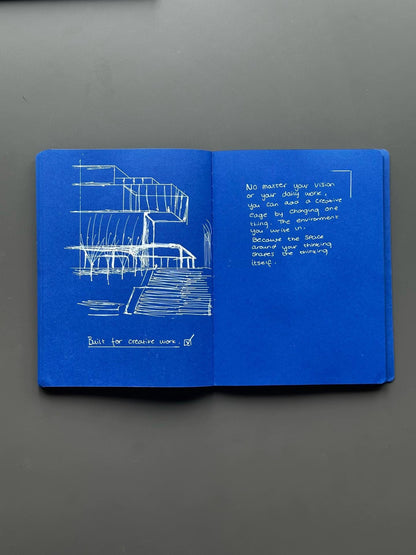 Built for creative work.
No matter your vision
or your daily work,
you can add a creative
edge by changing one
thing. The environment
you write in.
Because the space
around your thinking
shapes the thinking
itself.